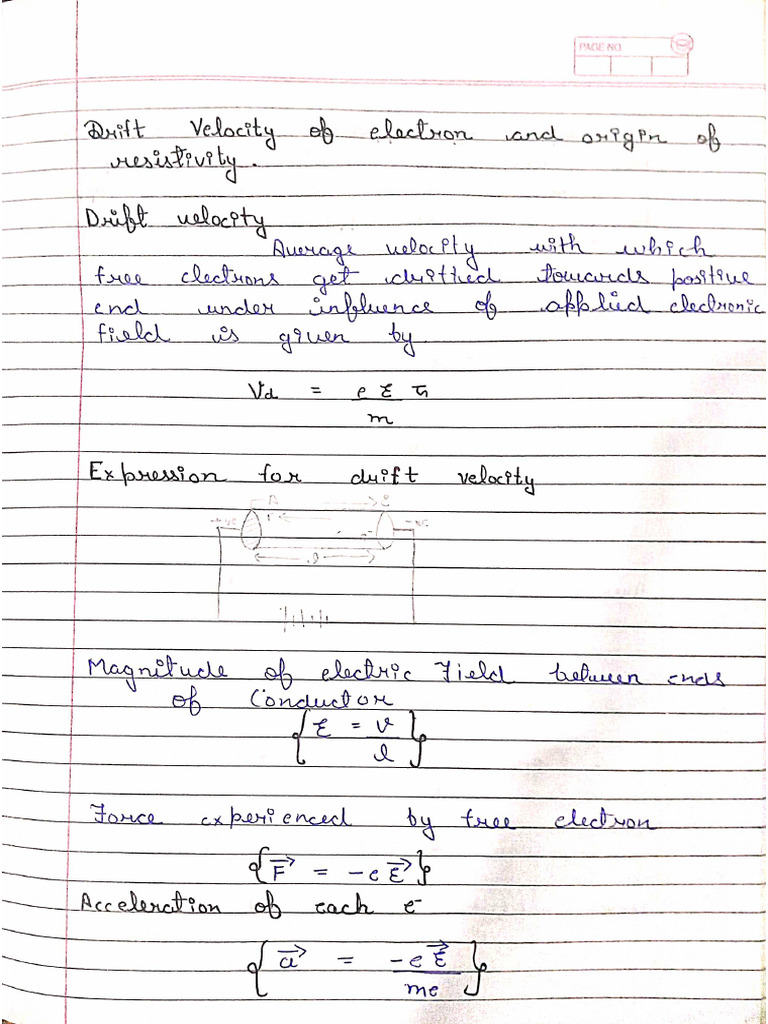 PAGE NO.
Drift Velocity of electron and origin of
resistivity.
Drift velocity
Average velocity with which
free electrons get drifted towards positive
end under influence of applied electronic
field is given by
Vd = e E τ
m
Expression for drift velocity
A
E
l
Magnitude of electric Field between ends
of Conductor
{E = v
l}
Force experienced by free electron
{F⃗ = -e E⃗}
Acceleration of each e⁻
{a⃗ = -e E⃗
me}